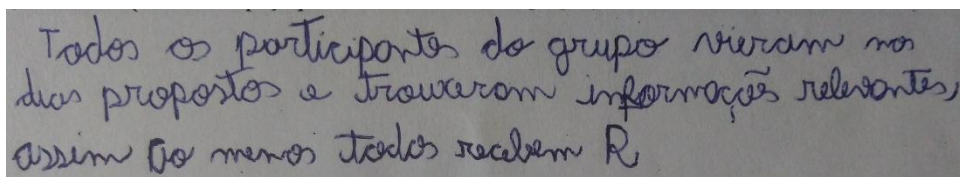 Todos os participantes do grupo vieram nos
dias propostos e trouxeram informações relevantes,
assim ao menos todos recebem R